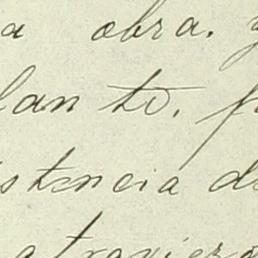 a obra. y
lan to, p
istencia de
atraviezo